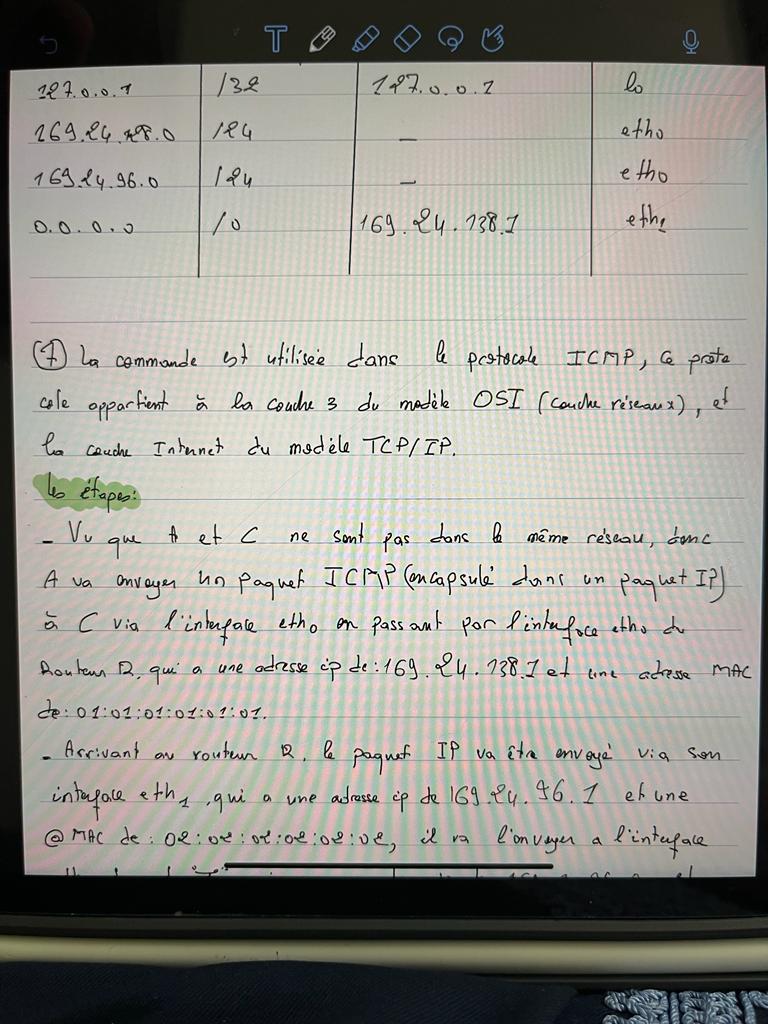 127.0.0.1 /32 127.0.0.1 lo
/24 — eth0
169.24.96.0 /24 — eth0
0.0.0.0 /0 169.24.138.1
⑦ La commande est utilisée dans le protocole ICMP, ce proto
cole appartient à la couche 3 du modèle OSI (couche réseaux), et
la couche Internet du modèle TCP/IP.
les étapes:
- Vu que A et C ne sont pas dans le même réseau, donc
A va envoyer un paquet ICMP (encapsulé dans un paquet IP)
à C via l'interface eth0 en passant par l'interface eth0 du
Routeur R, qui a une adresse ip de : 169.24.138.1 et une adresse MAC
de : 01:01:01:01:01:01.
- Arrivant au routeur R, le paquet IP va être envoyé via son
interface eth1, qui a une adresse ip de 169.24.96.1 et une
@ MAC de : 02:02:02:02:02:02, il va l'envoyer a l'interface